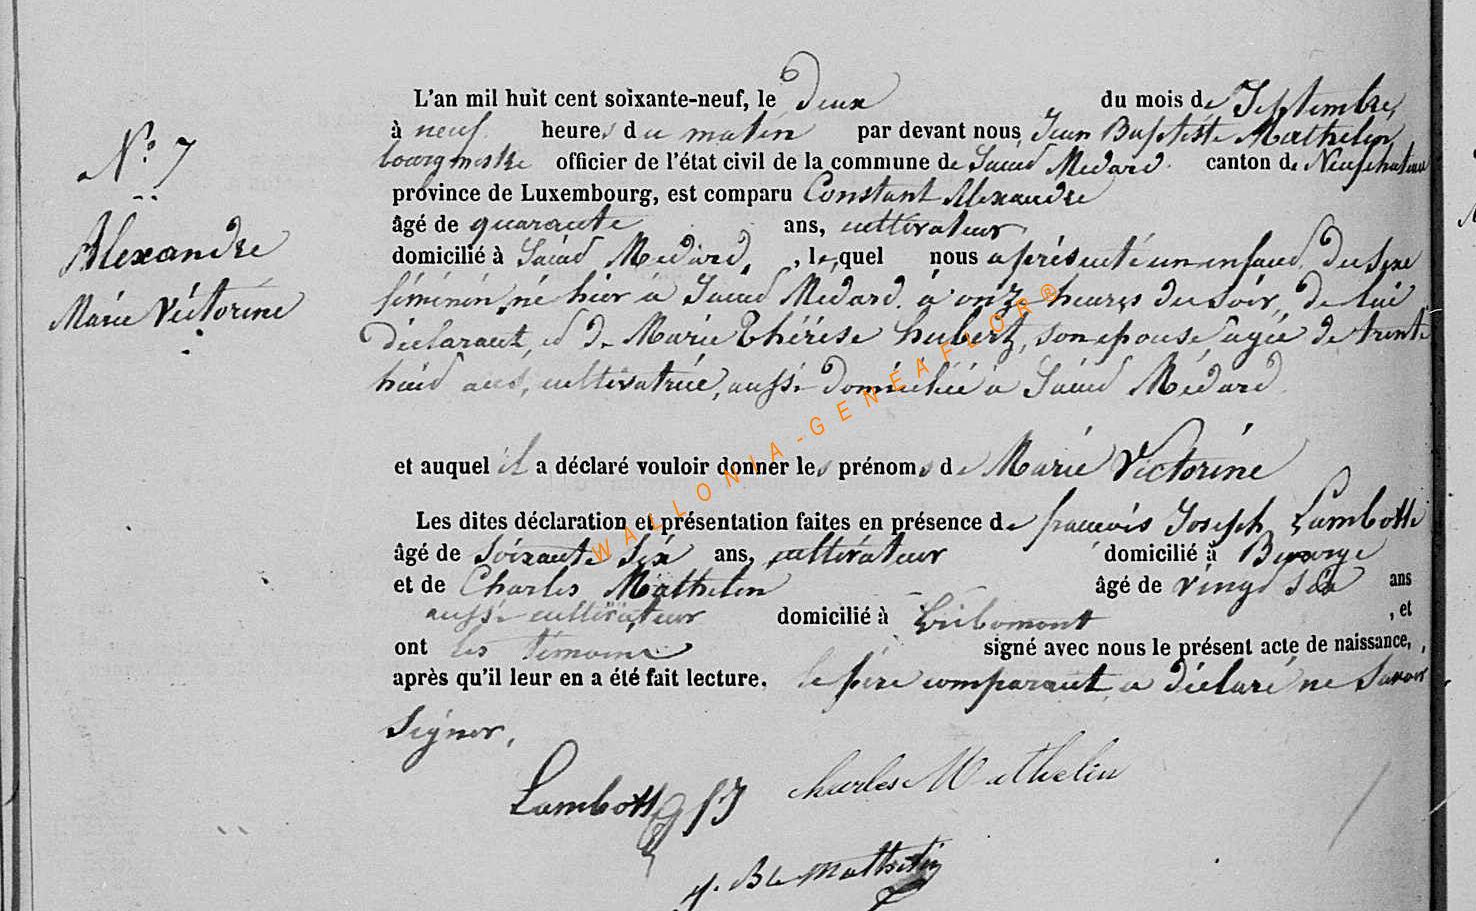 L'an mil huit cent soixante-neuf, le deux du mois de Septembre
à neuf heures du matin par devant nous Jean Baptiste Mathelin
bourgmestre officier de l'état civil de la commune de Saint Médard canton de Neufchateau
province de Luxembourg, est comparu Constant Alexandre
âgé de quarante ans, cultivateur
domicilié à Saint Médard, , lequel nous a présenté un enfant du sexe
féminin, né hier à Saint Médard à onze heures du soir, de lui
déclarant, et de Marie Thérèse hubert, son epouse agée de trente
huit ans, cultivatrice, aussi domiciliée à Saint Médard
et auquel il a déclaré vouloir donner les prénoms de Marie Victorine
Les dites déclaration et présentation faites en présence de françois Joseph Lambotte
âgé de soixante six ans, cultivateur domicilié à
et de Charles Mathelin âgé de vingt six ans
aussi cultivateur domicilié à Gribomont , et
ont les témoins signé avec nous le présent acte de naissance, ,
après qu'il leur en a été fait lecture. le père comparant a déclaré ne savoir
signer.
N° 7
Alexandre
Marie Victorine
Lambotte f J
charles Mathelin
J. Bte Mathelin
WALLONIA-GENEAFLOR®